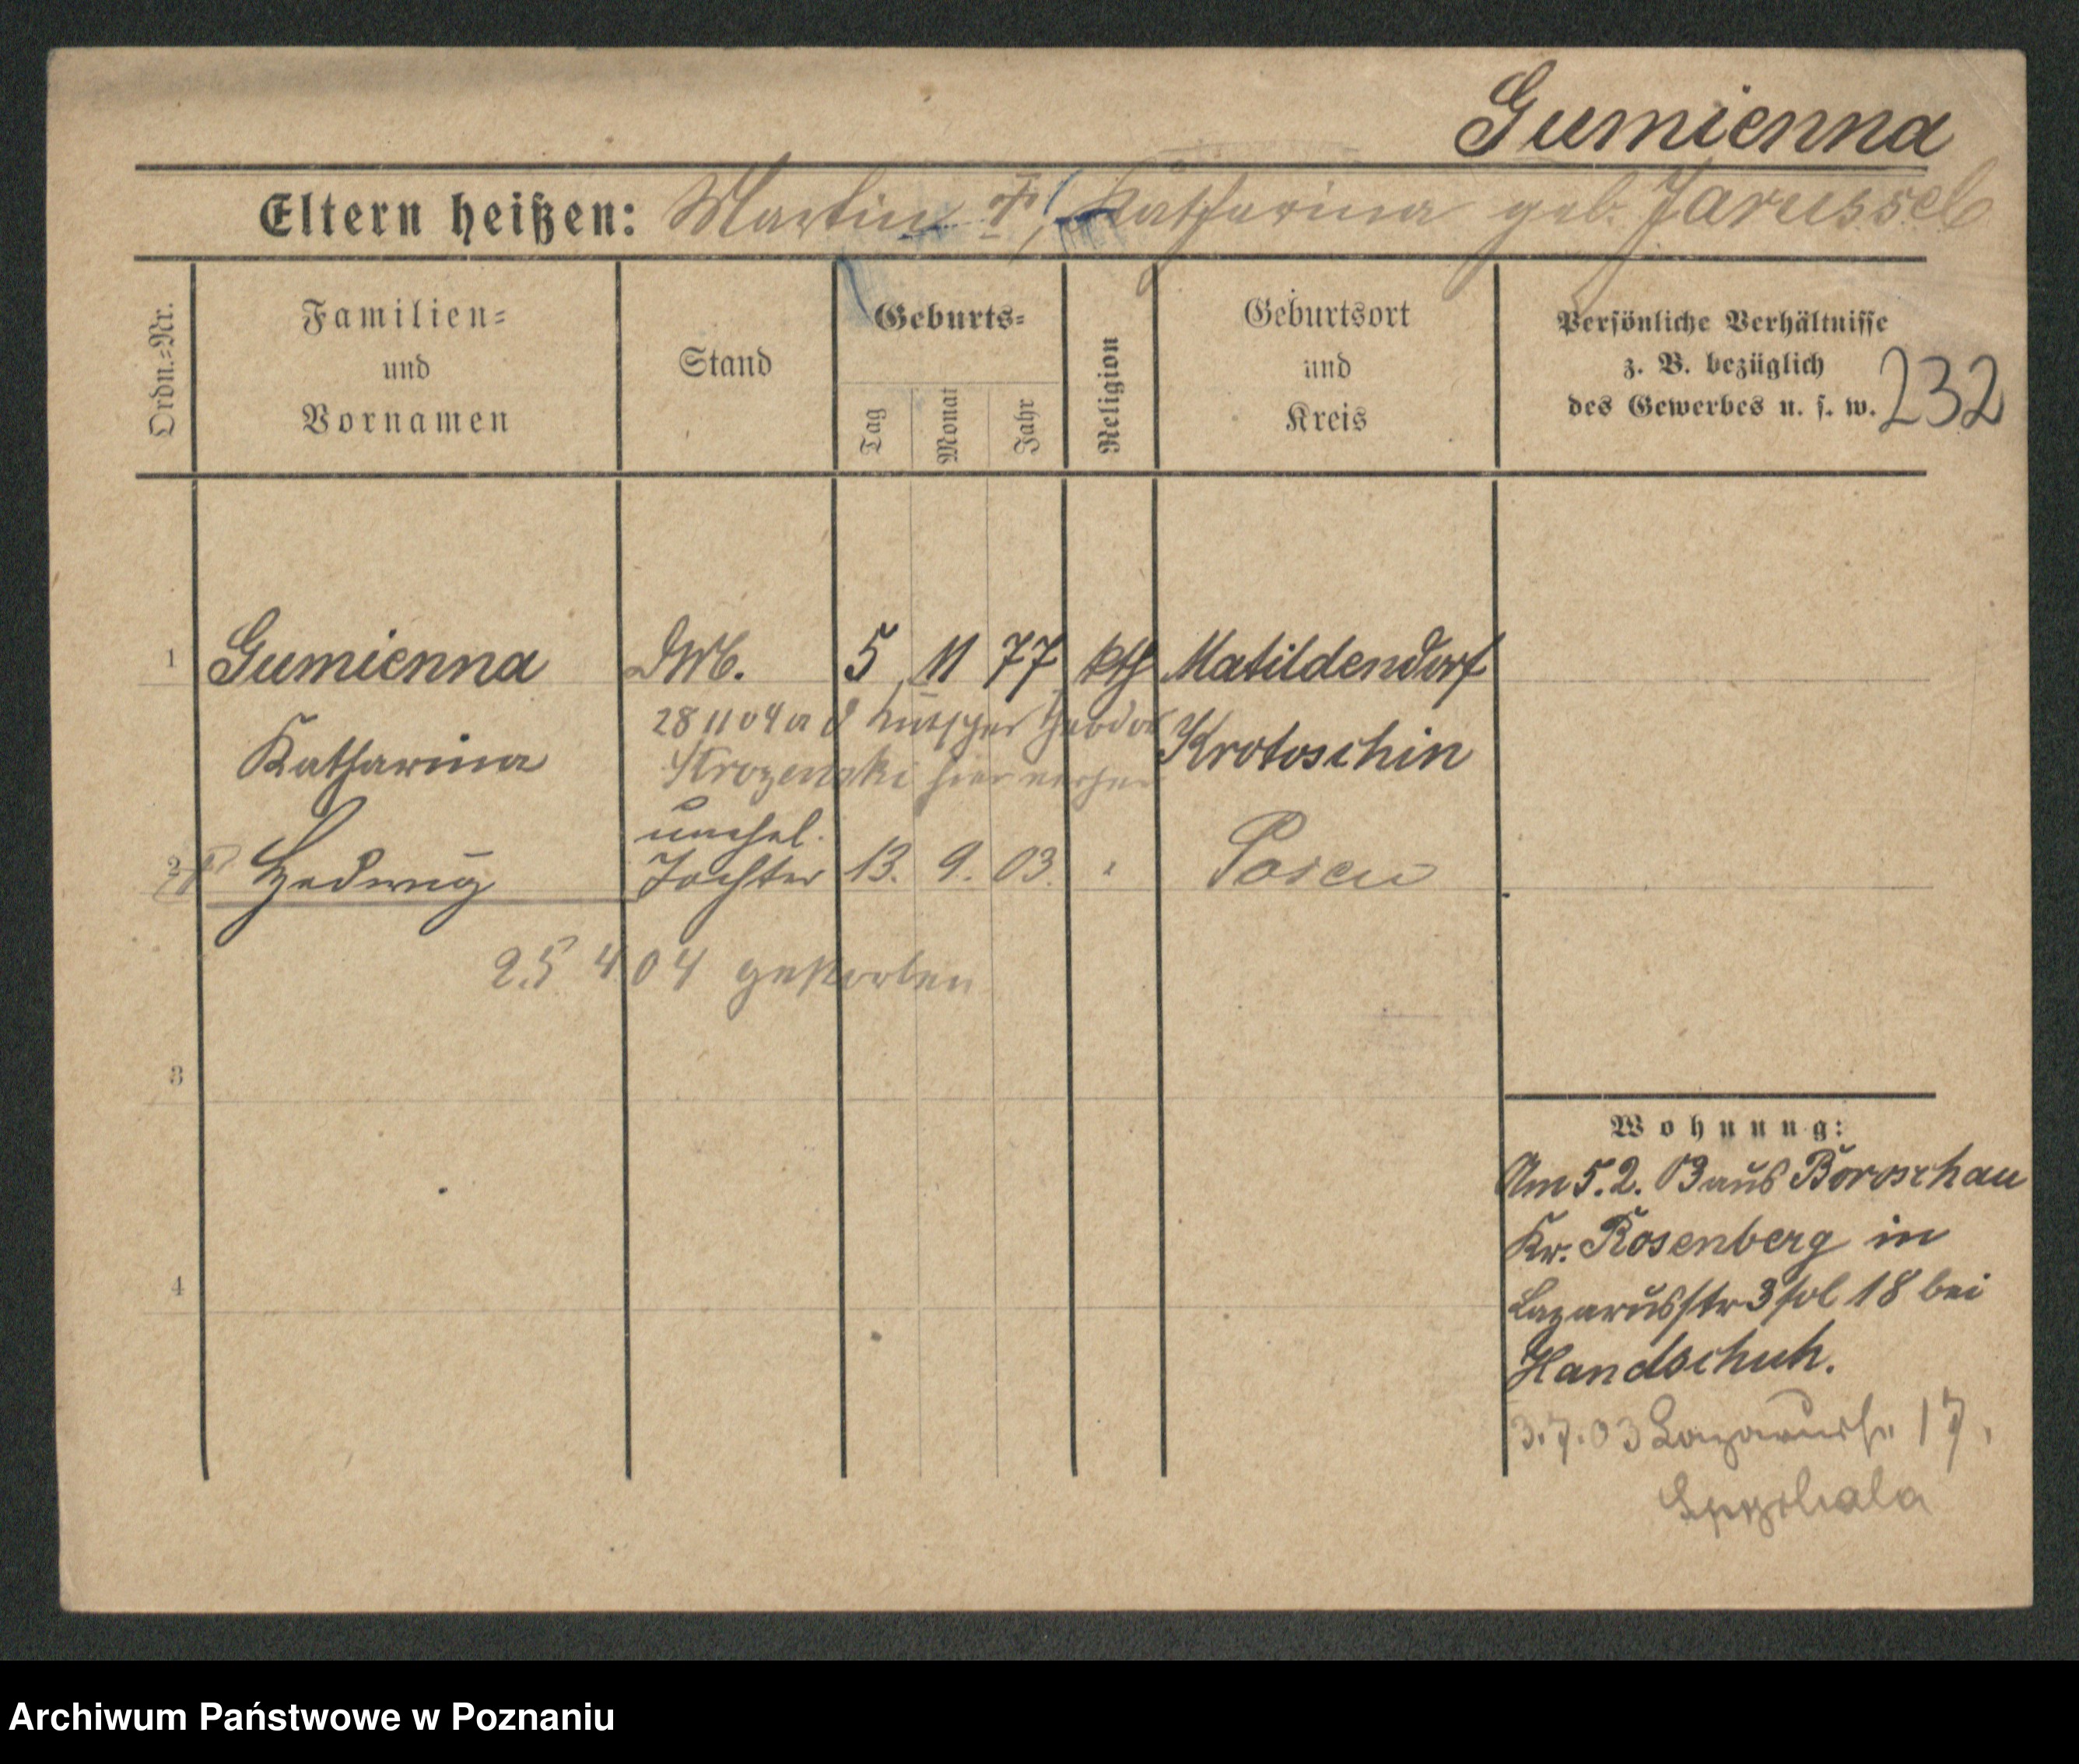 Gumienna
Eltern heißen: Martin †, Katharina geb. Jarussek
Ordn.=Nr.
Familien=
und
Vornamen
Stand
Geburts=
Tag
Monat
Jahr
Religion
Geburtsort
und
Kreis
Persönliche Verhältnisse
z. B. bezüglich
des Gewerbes u. s. w.
232
1 Gumienna 5 11 77 kth Matildendorf
28 11 04 a d Kutscher
Katharina Krotoschin
hier verhei
unehel.
2 Hedwig Tochter 13. 9. 03. Posen
25 4 04 gestorben
3
4
Wohnung:
Am 5.2. 03 aus Boroschau
Kr. Rosenberg in
Lazarusstr 3 sol 18 bei
Handschuh.
3.7.03 Lazarusstr. 17.
Archiwum Państwowe w Poznaniu